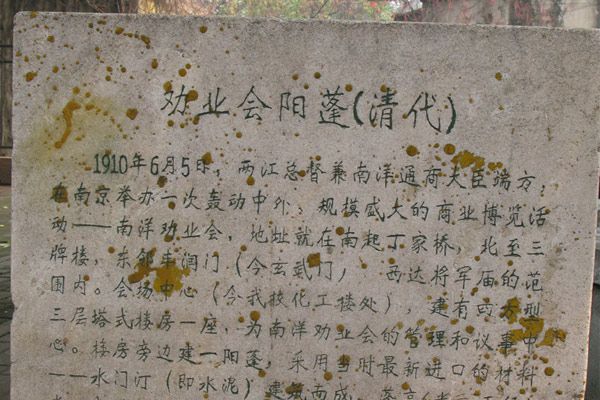 劝业会阳蓬(清代)
1910年6月5日，两江总督兼南洋通商大臣端方，
在南京举办一次轰动中外，规模盛大的商业博览活
动——南洋劝业会，地址就在南起丁家桥，北至三
牌楼，东邻丰润门（今玄武门， 西达将军庙的范
围内。会场中心（今我校化工楼处），建有西方型
三层塔式楼房一座，为南洋劝业会的管理和议事中
心。楼房旁边建一阳蓬，采用当时最新进口的材料
——水门汀（即水泥）建筑而成，蓬高